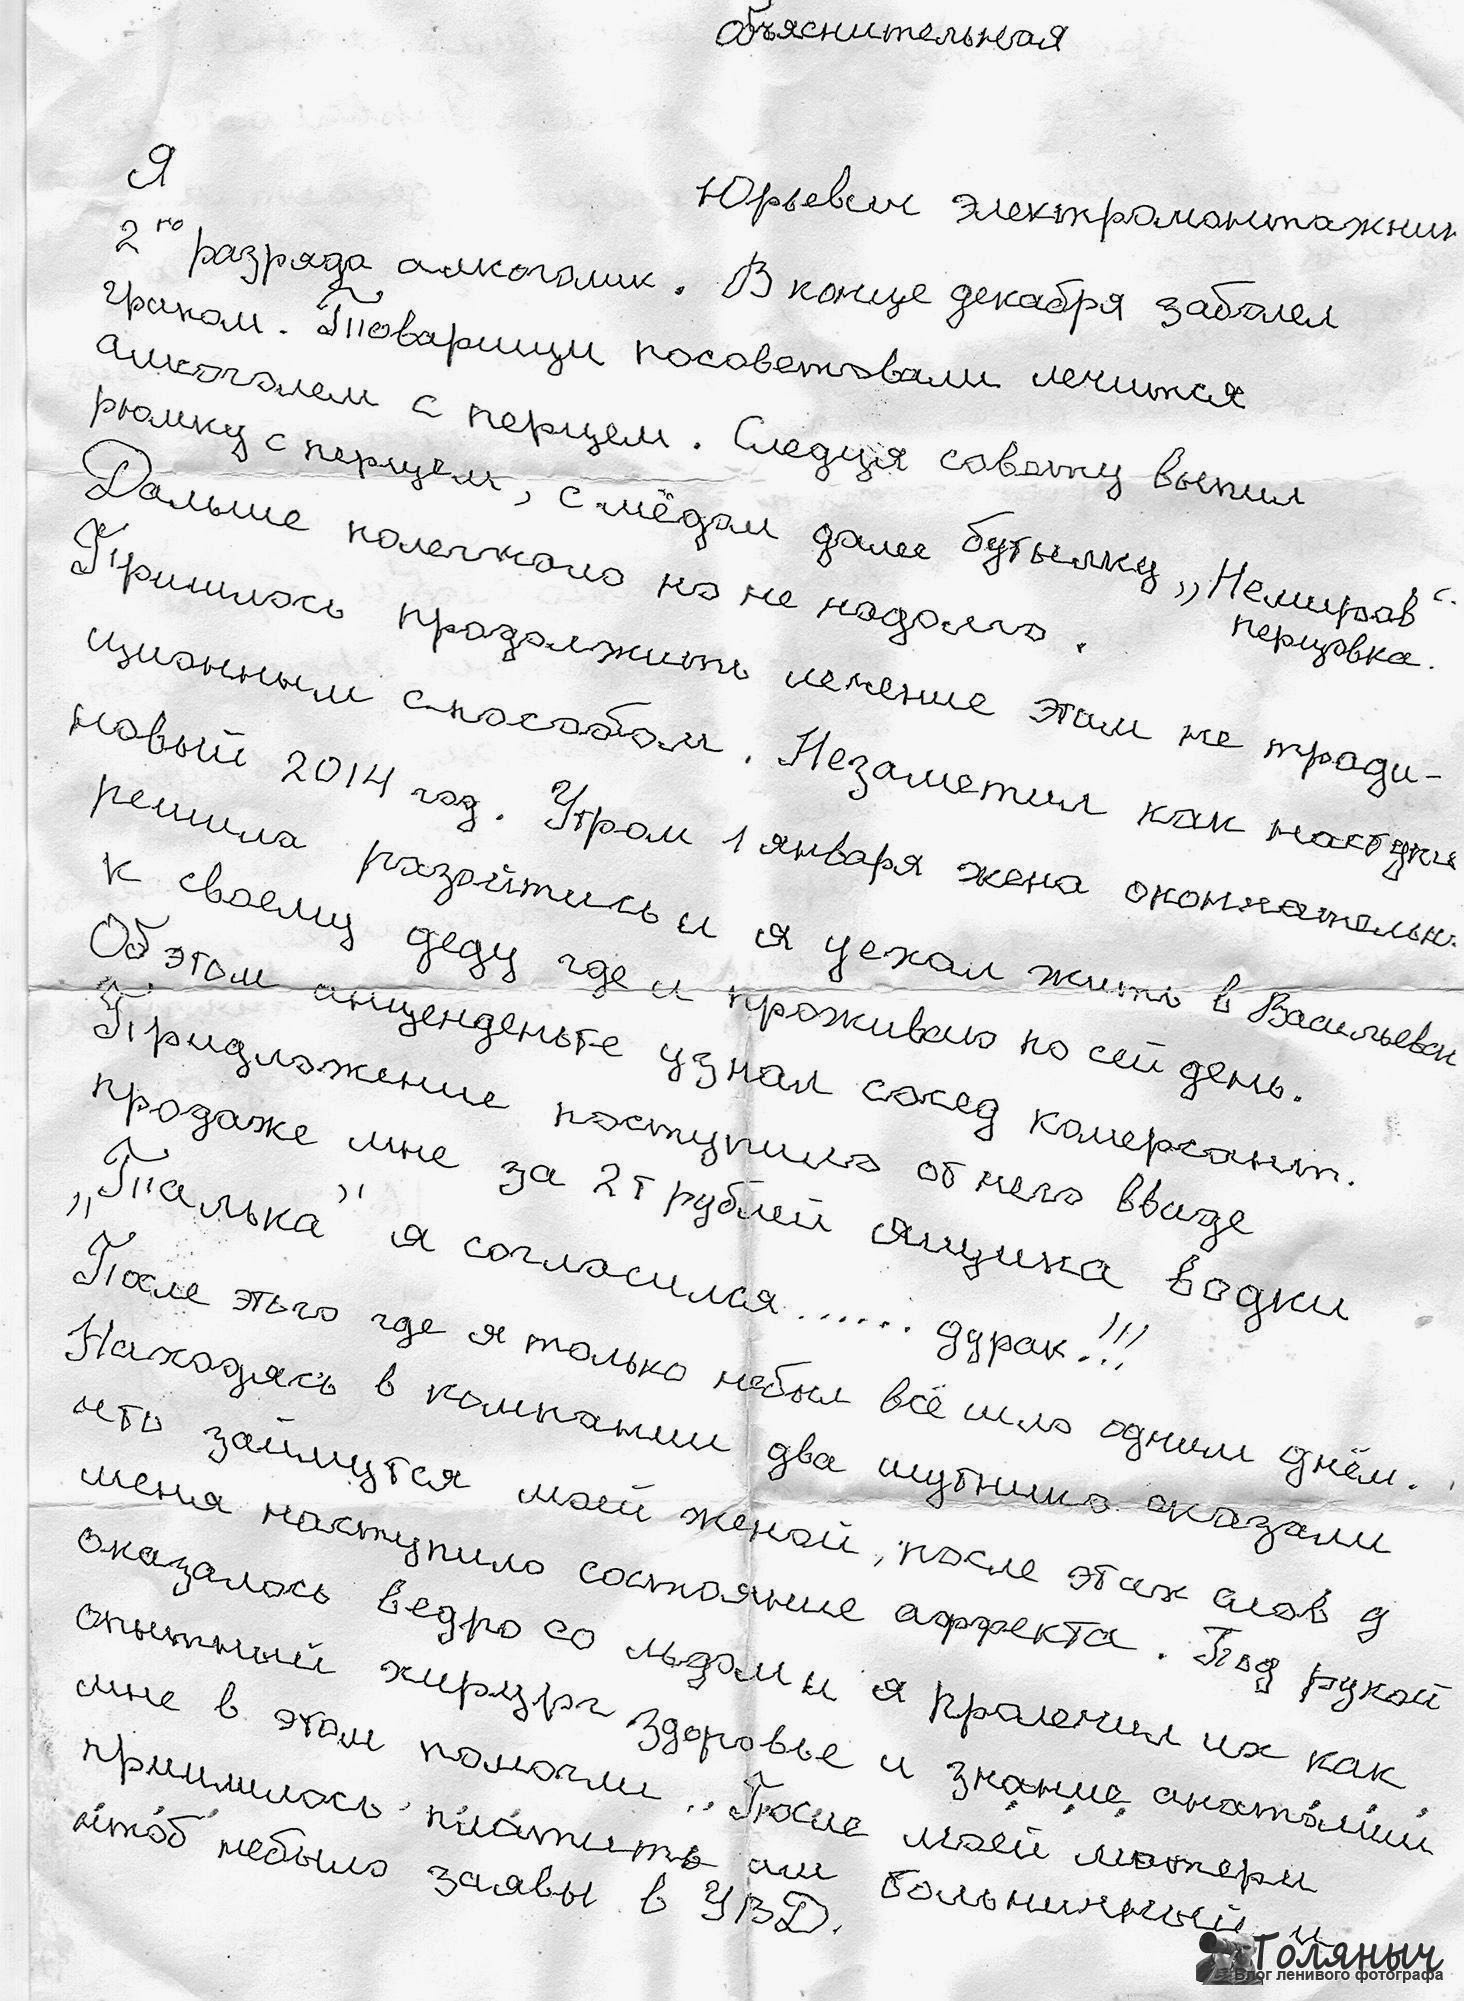 Объяснительная
Я Юрьевич электромонтажник
2го разряда алкоголик. В конце декабря заболел
грипом. Товарищи посоветовали лечится
алкоголем с перцем. Следуя совету выпил
рюмку с перцем, с мёдом далее бутылку „Немиров“
перцовка.
Дальше полегчало но не надолго.
Пришлось продолжить лечение этим не тради-
ционным способом. Незаметил как наступил
новый 2014 год. Утром 1 января жена окончательно
решила разойтись и я уехал жить в Васильевск
к своему деду где и проживаю по сей день.
Об этом инценденьте узнал сосед комерсант.
Придложение поступило от него ввиде
продаже мне за 2т рублей ящика водки
„Талька" я согласился ...... дурак!!!
После этого где я только небыл всё шло одним днём.
Находясь в компании два шутника сказали
что займутся моей женой, после этих слов у
меня наступило состояние аффекта. Под рукой
оказалось ведро со льдом и я пролечил их как
опытный хирург здоровье и знание анатомии
мне в этом помогли. После моей матери
пришлось платить им больничный и
чтоб небыло заявы в УВД.
Голяныч
Блог ленивого фотографа